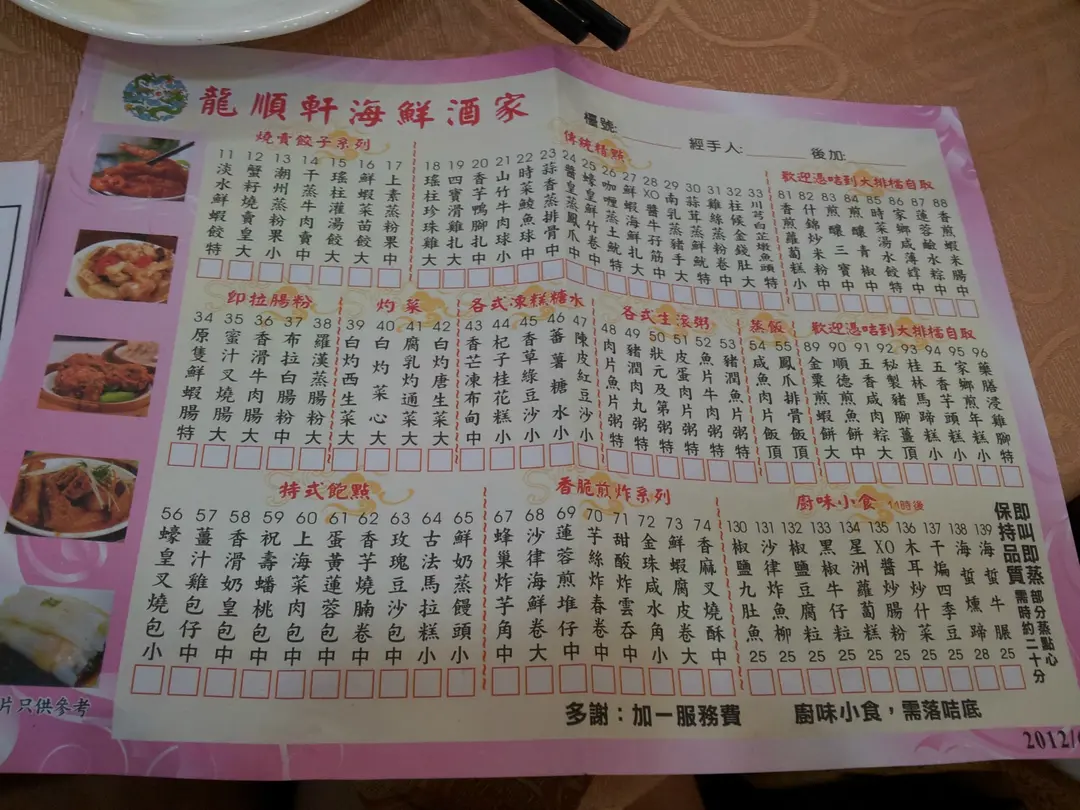 龍順軒海鮮酒家
檯號:
經手人:
後加:
燒賣餃子系列
11 淡水鮮蝦餃 特
12 蟹籽燒賣皇 大
13 潮州蒸粉果 小
14 干蒸牛肉賣 中
15 瑤柱灌湯餃 大
16 鮮蝦菜苗餃 大
17 上素蒸粉果 中
傳統精點
18 瑤柱珍珠雞 大
19 四寶滑雞扎 大
20 香芋鴨腳扎 中
21 山竹牛肉球 小
22 時菜鯪魚球 中
23 蒜香蒸排骨 中
24 醬皇蒸鳳爪 中
25 蠔皇鮮竹卷 中
26 咖喱蒸土魷 特
27 鮮蝦海鮮扎 大
28 XO醬牛孖筋 中
29 南乳蒸豬手 大
30 蒜茸蒸鮮魷 特
31 雞絲蒸粉卷 中
32 柱候金錢肚 大
33 川芎白芷燉魚頭 特
歡迎憑咭到大排檔自取
81 香煎蘿蔔糕 小
82 什錦炒米粉 中
83 煎釀三寶 中
84 煎釀青椒 中
85 時菜湯水餃 特
86 家鄉咸薄罉 中
87 蓮蓉鹼水粽 中
88 香煎蝦米腸 中
即拉腸粉
34 原隻鮮蝦腸 特
35 蜜汁叉燒腸 大
36 香滑牛肉腸 大
37 布拉白腸粉 中
38 羅漢蒸腸粉 大
灼菜
39 白灼西生菜 大
40 白灼菜心 大
41 腐乳灼通菜 大
42 白灼唐生菜 大
各式凍糕糖水
43 香芒凍布甸 中
44 杞子桂花糕 小
45 香草綠豆沙 小
46 蕃薯糖水 小
47 陳皮紅豆沙 小
各式生滾粥
48 肉片魚片粥 特
49 豬潤肉丸粥 特
50 狀元及第粥 特
51 皮蛋肉片粥 特
52 魚片牛肉粥 特
53 豬潤魚片粥 特
蒸飯
54 咸魚肉片飯 頂
55 鳳爪排骨飯 頂
歡迎憑咭到大排檔自取
89 金粟煎蝦餅 大
90 順德煎魚餅 中
91 五香咸肉粽 大
92 秘製豬腳薑 頂
93 桂林馬蹄糕 小
94 五香芋頭糕 小
95 家鄉煎年糕 小
96 藥膳浸雞腳 特
特式飽點
56 蠔皇叉燒包 小
57 薑汁雞包仔 中
58 香滑奶皇包 中
59 祝壽蟠桃包 中
60 上海菜肉包 中
61 蛋黃蓮蓉包 中
62 香芋燒腩卷 中
63 玫瑰豆沙包 中
64 古法馬拉糕 小
65 鮮奶蒸饅頭 小
香脆煎炸系列
67 蜂巢炸芋角 中
68 沙律海鮮卷 大
69 蓮蓉煎堆仔 中
70 芋絲炸春卷 中
71 甜酸炸雲吞 中
72 金珠咸水角 小
73 鮮蝦腐皮卷 大
74 香麻叉燒酥 中
廚味小食 11時後
130 椒鹽九肚魚 25
131 沙律炸魚柳 25
132 椒鹽豆腐粒 25
133 黑椒牛仔粒 25
134 星洲蘿蔔糕 25
135 XO醬炒腸粉 25
136 木耳炒什菜 25
137 干煸四季豆 25
138 海蜇燻蹄 28
139 海蜇牛𦟌 25
即叫即蒸
保持品質
部分蒸點心
需時約二十分
多謝：加一服務費
廚味小食，需落咭底
片只供參考
2012/